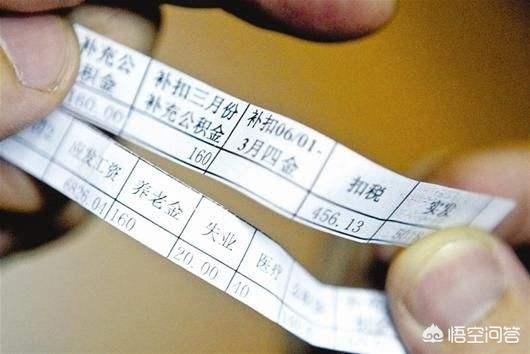 补充公
积金
160.00
补扣三月份
补充公积金
160
补扣06/01-
3月四金
扣税
456.13
实发
应发工资
6826.04
养老金
160
失业
20.00
医疗
40
悟空问答